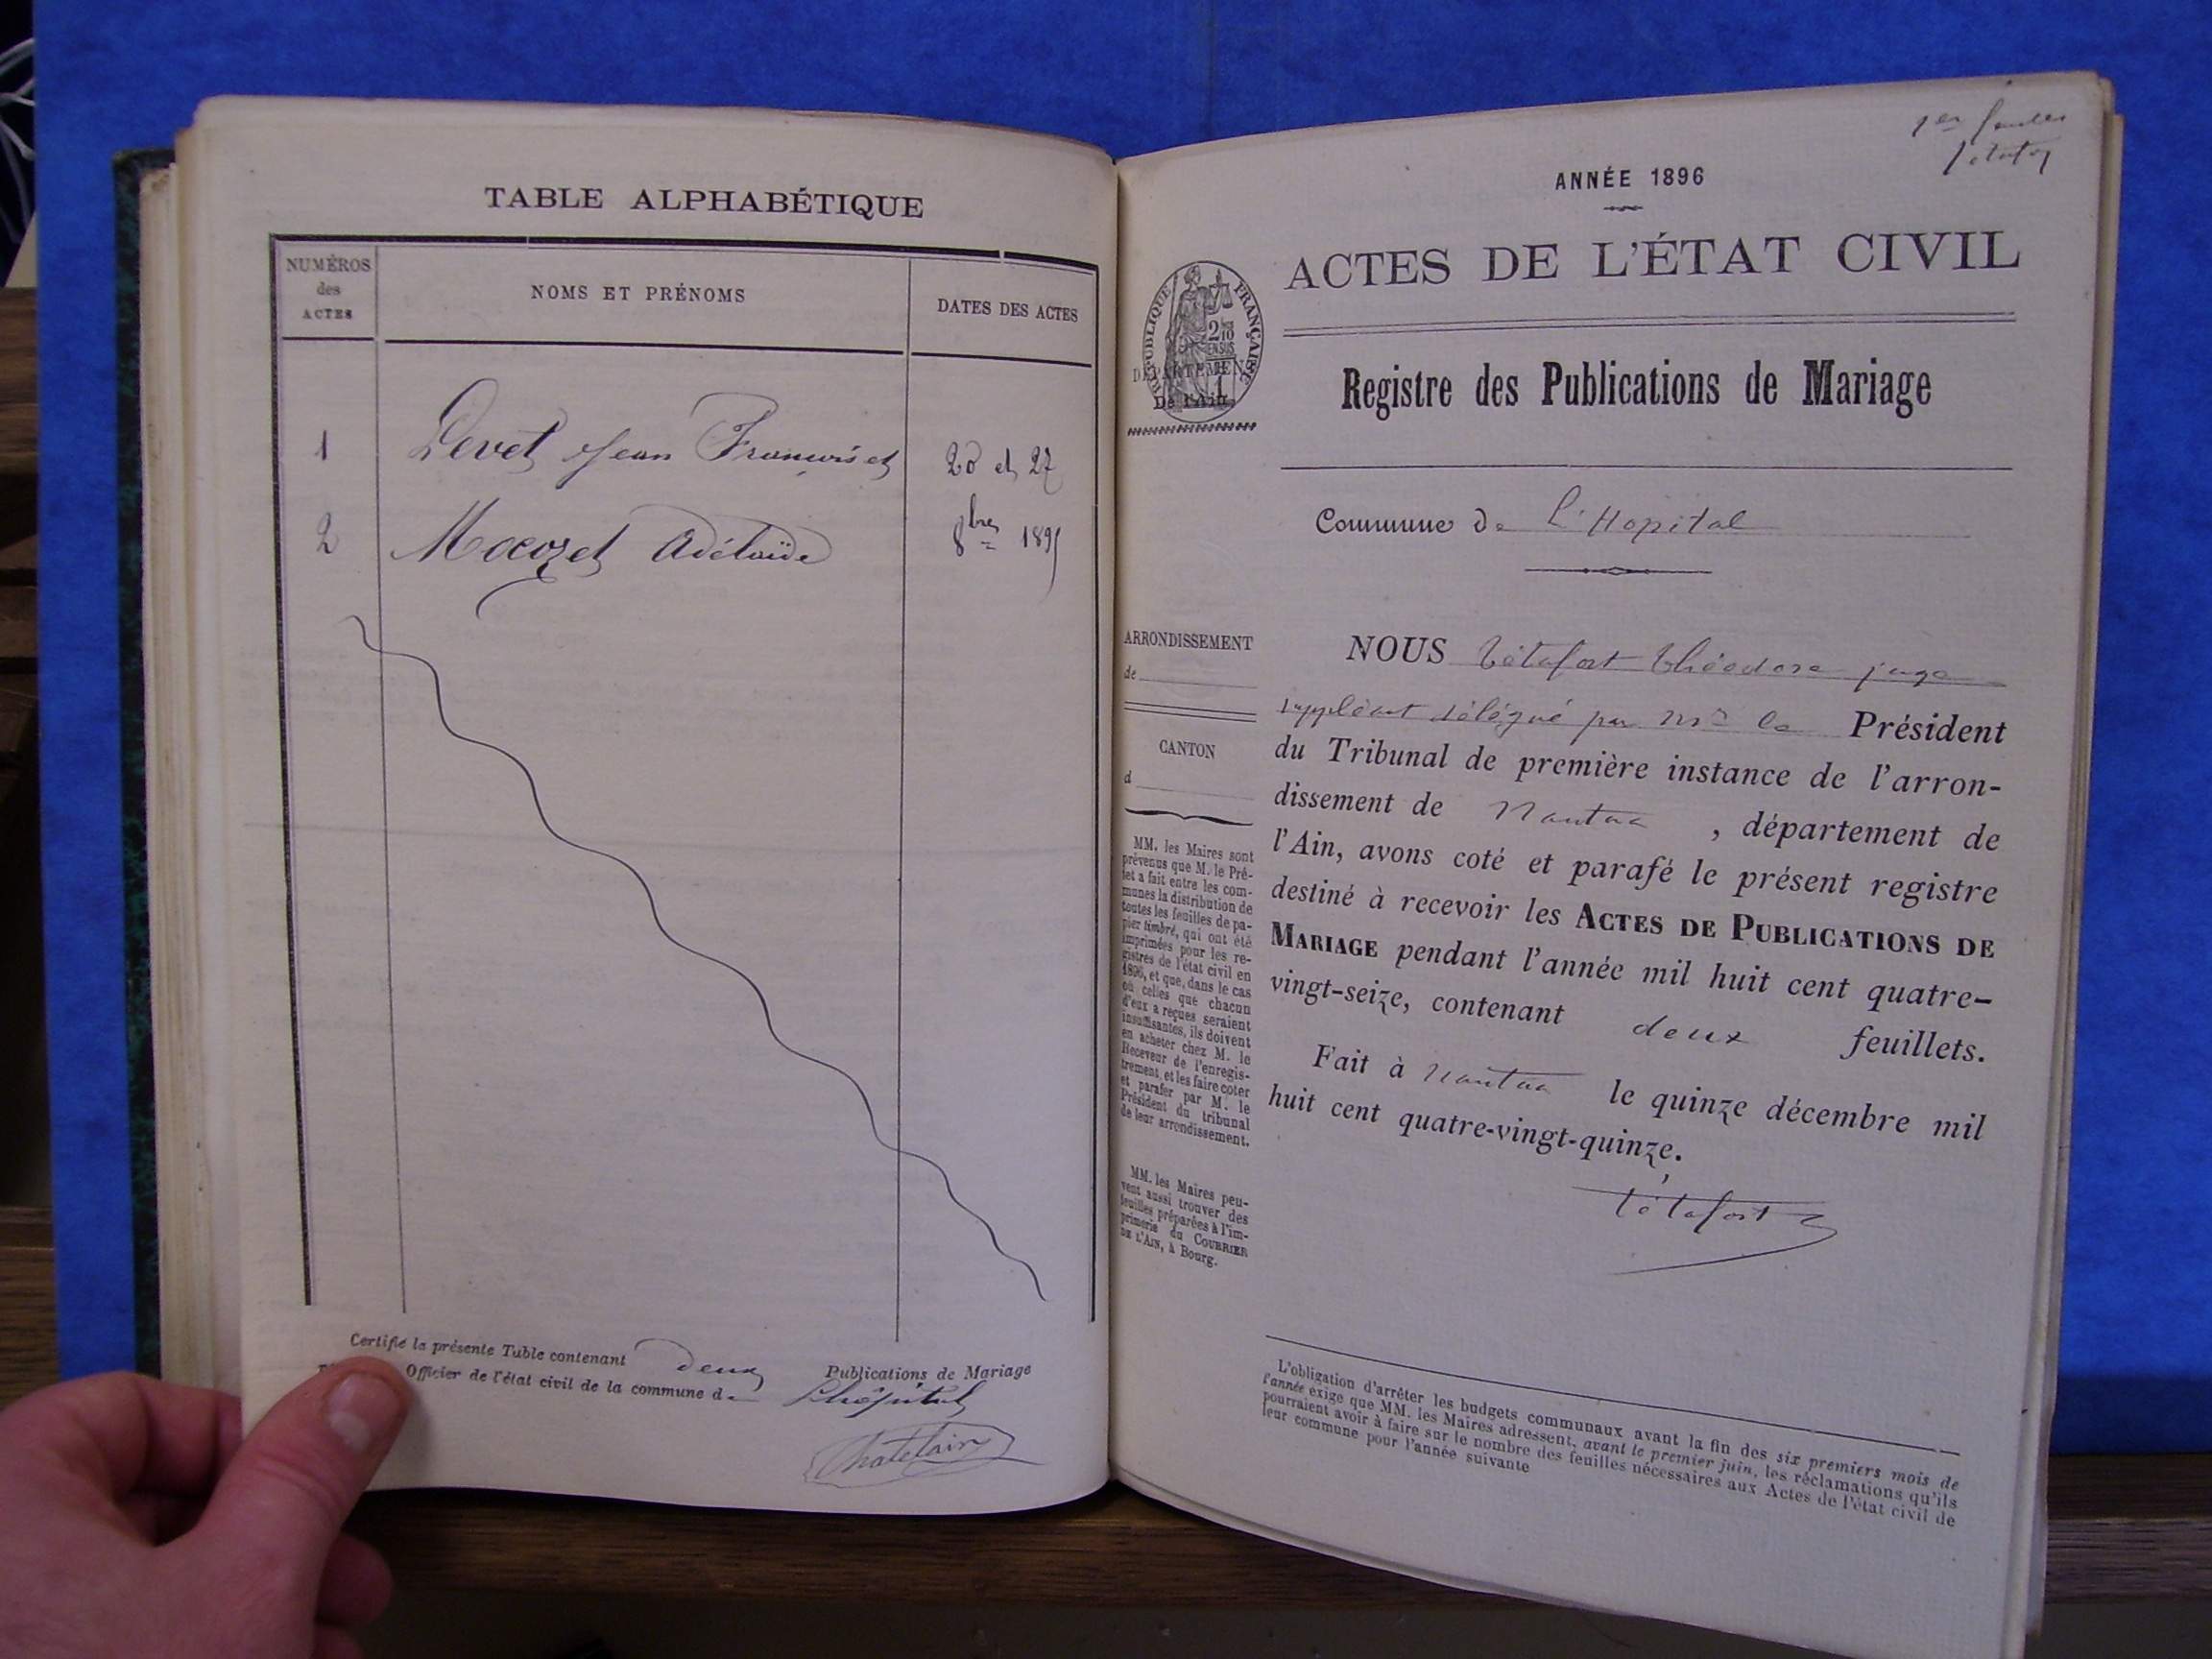 TABLE ALPHABÉTIQUE
NUMÉROS
des
ACTES
NOMS ET PRÉNOMS
DATES DES ACTES
1 Levet Jean François et 20 et 27
2 Mocozet Adélaïde 8bre 1895
Certifié la présente Table contenant deux Publications de Mariage
Officier de l'état civil de la commune de Lhôpital
Chatelain
1er feuillet
Tétafort
ANNÉE 1896
ACTES DE L'ÉTAT CIVIL
RÉPUBLIQUE FRANÇAISE
2/10
EN SUS
DÉPARTEMENT
De l'Ain.
Registre des Publications de Mariage
Commune de L'Hopital
ARRONDISSEMENT
de
CANTON
d
MM. les Maires sont
prévenus que M. le Pré-
fet a fait entre les com-
munes la distribution de
toutes les feuilles de pa-
pier timbré, qui ont été
imprimées pour les re-
gistres de l'état civil en
1896, et que, dans le cas
où celles que chacun
d'eux a reçues seraient
insuffisantes, ils doivent
en acheter chez M. le
Receveur de l'enregis-
trement, et les faire coter
et parafer par M. le
Président du tribunal
de leur arrondissement.
MM. les Maires peu-
vent aussi trouver des
feuilles préparées à l'im-
primerie du COURRIER
DE L'AIN, à Bourg.
NOUS Tétafort Théodore juge
suppléant délégué par Mr le Président
du Tribunal de première instance de l'arron-
dissement de Nantua , département de
l'Ain, avons coté et parafé le présent registre
destiné à recevoir les ACTES DE PUBLICATIONS DE
MARIAGE pendant l'année mil huit cent quatre-
vingt-seize, contenant deux feuillets.
Fait à Nantua le quinze décembre mil
huit cent quatre-vingt-quinze.
Tétafort
L'obligation d'arrêter les budgets communaux avant la fin des six premiers mois de
l'année exige que MM. les Maires adressent, avant le premier juin, les réclamations qu'ils
pourraient avoir à faire sur le nombre des feuilles nécessaires aux Actes de l'état civil de
leur commune pour l'année suivante